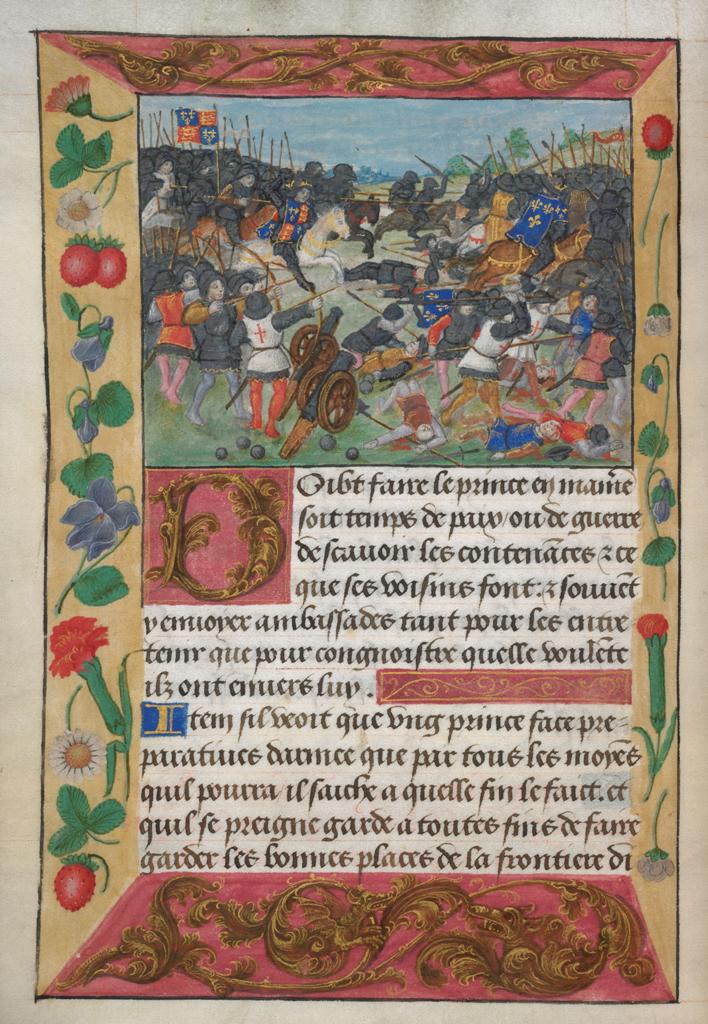 Doibt faire le prince en maniē
soit temps de paix ou de guerre
de scauoir les contenāces ⁊ ce
que ses voisins font: ⁊ souuēt
y enuoyer ambassades tant pour les entre
tenir que pour congnoistre quelle voulēte
ilz ont enuers luy.
Item sil veoit que vng prince face pre-
paratiues darmee que par tous les moyēs
quil pourra il saiche a quelle fin le faict. et
quil se preigne garde a toutes fins de faire
garder les bonnes places de la frontiere di